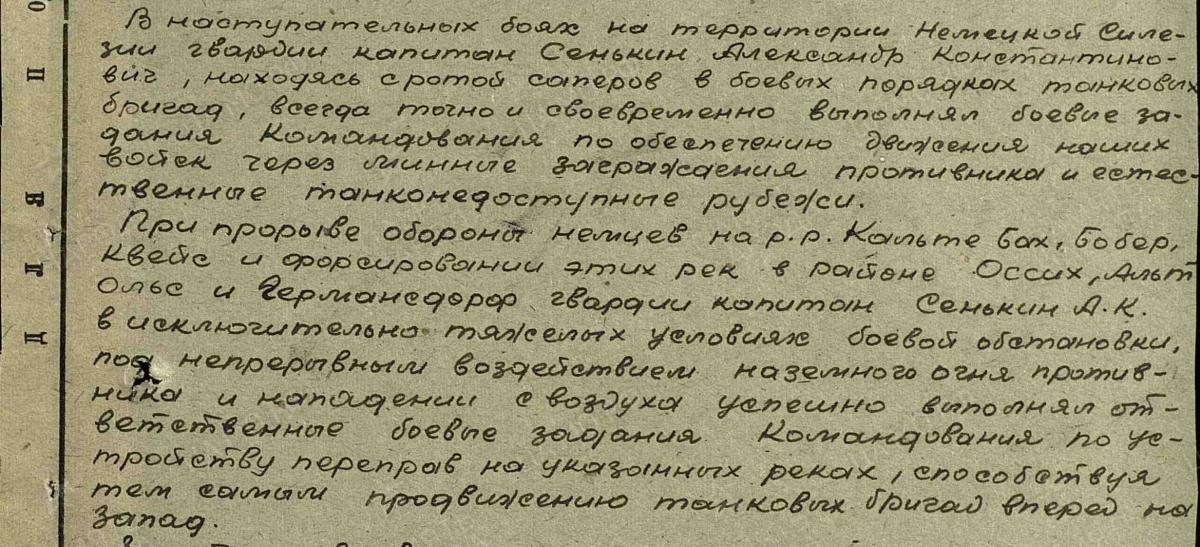 В наступательных боях на территории Немецкой Силе-
зии гвардии капитан Сенькин Александр Константино-
вич, находясь с ротой саперов в боевых порядках танковых
бригад, всегда точно и своевременно выполнял боевые за-
дания Командования по обеспечению движения наших
войск через минные заграждения противника и естес-
твенные танконедоступные рубежи.
При прорыве обороны немцев на р.р. Кальте Бах, Бобер,
Квейс и форсировании этих рек в районе Оссих, Альт
Ольс и Германсдорф гвардии капитан Сенькин А.К.
в исключительно тяжелых условиях боевой обстановки,
под непрерывным воздействием наземного огня против-
ника и нападении с воздуха успешно выполнял от-
ветственные боевые задания Командования по ус-
тройству переправ на указанных реках, способствуя
тем самым продвижению танковых бригад вперед на
запад.